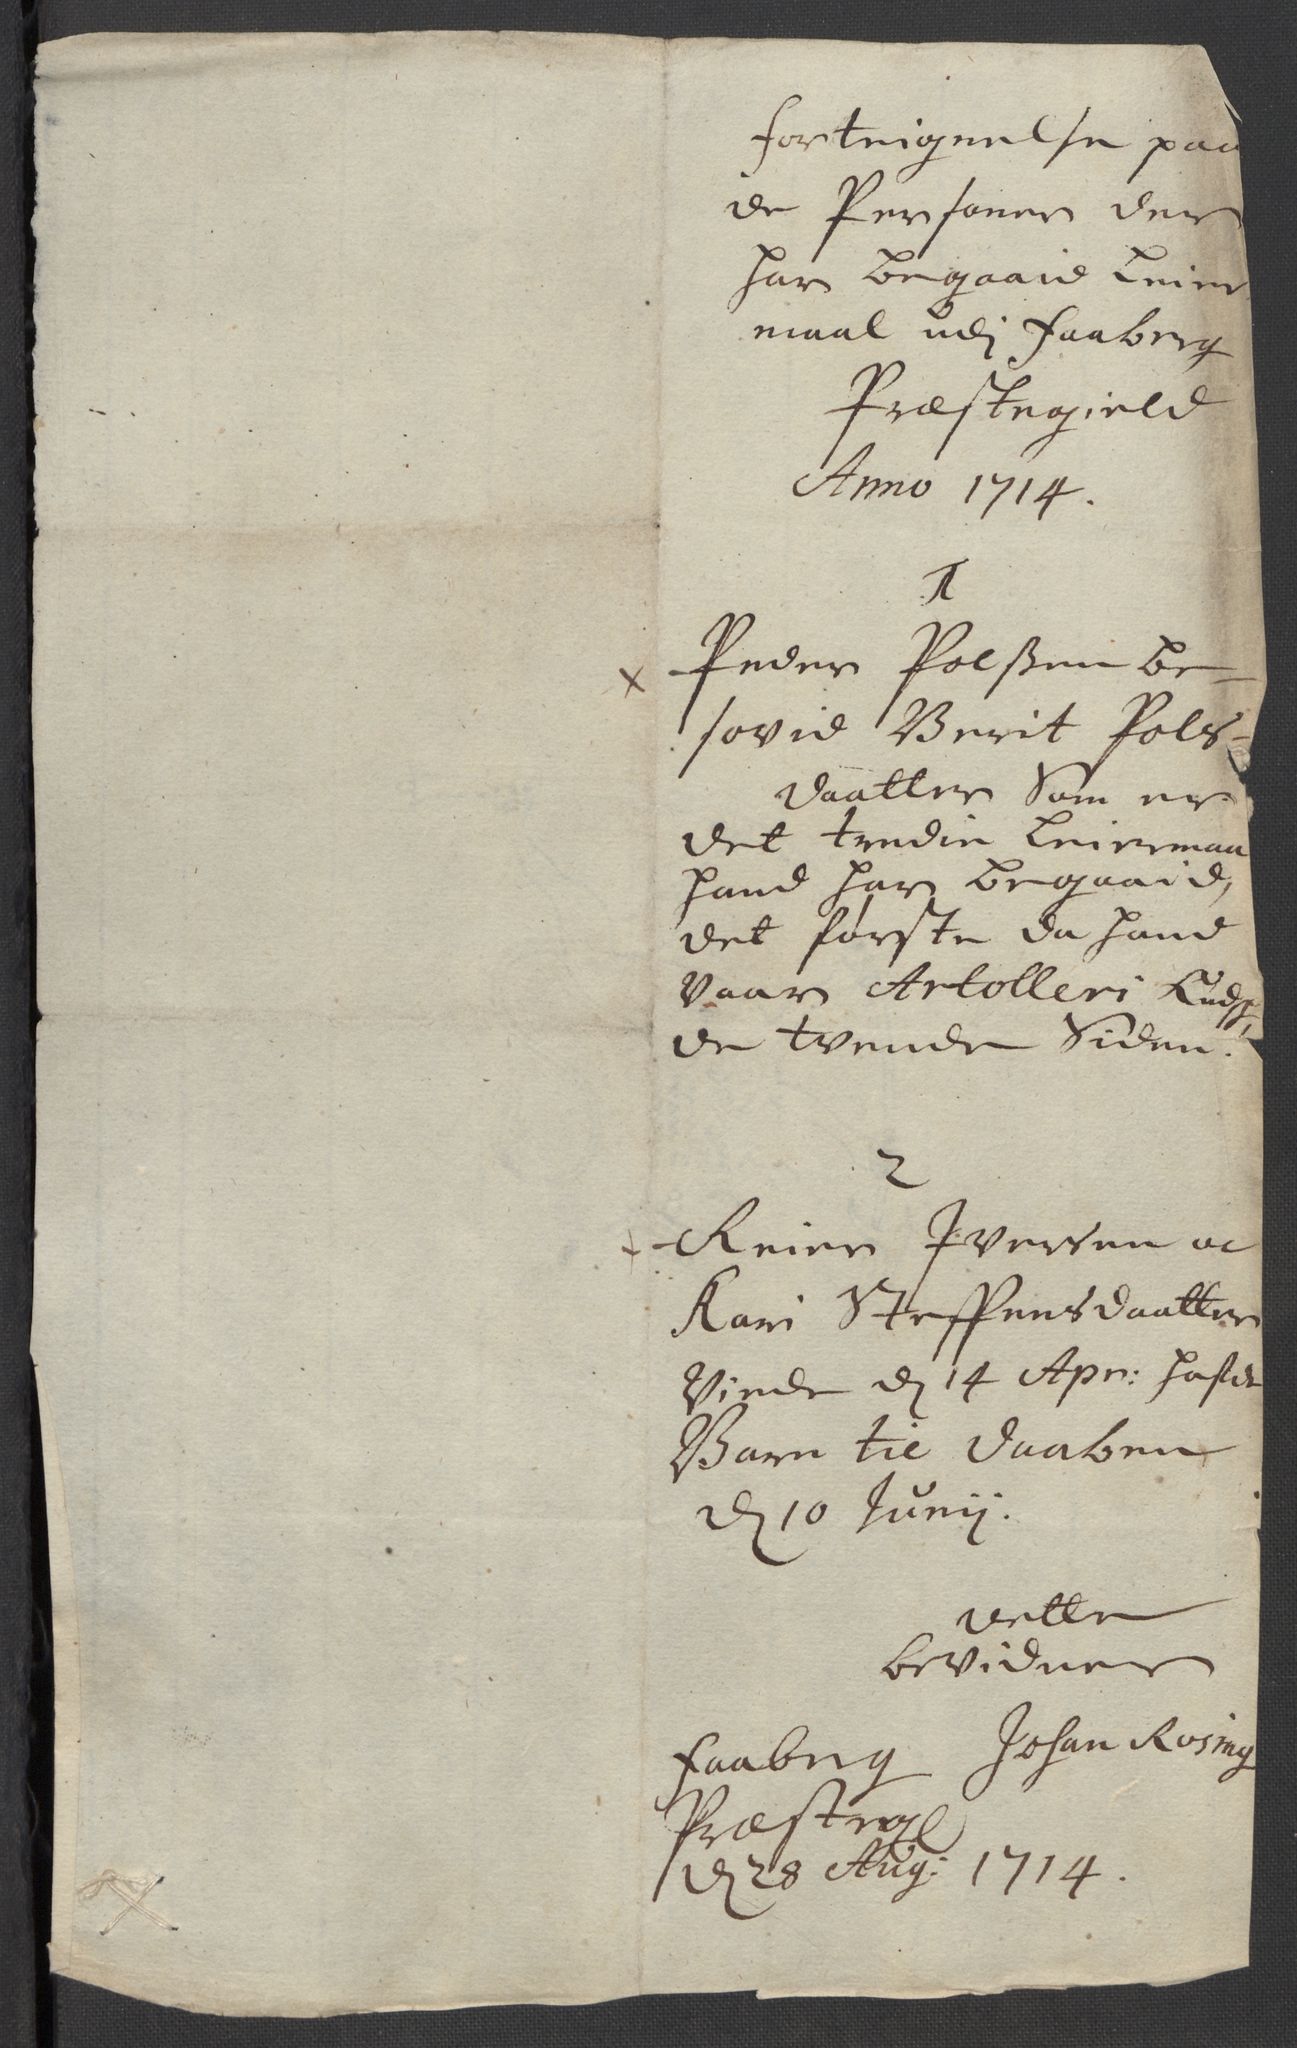 forteignelse paa
de Personer der
har begaaid Leier
maal udj faaberg
Præstegield
Anno 1714.
1
x Peder Polßen be-
sovid Berit Pols-
daatter Som er
det tredie Leiermaa
hand har begaaid,
det første da hand
vaar Artolleri Kudsk,
de tvende Siden.
2
+ Reier Iversen oc
Kari Steffensdaatter
Viede dj 14 Apr: hafde
Barn til daaben
dj 10 Junij.
dette
bevidner
Johan Rosing
faaberg
Præstegl
dj 28 Aug: 1714.